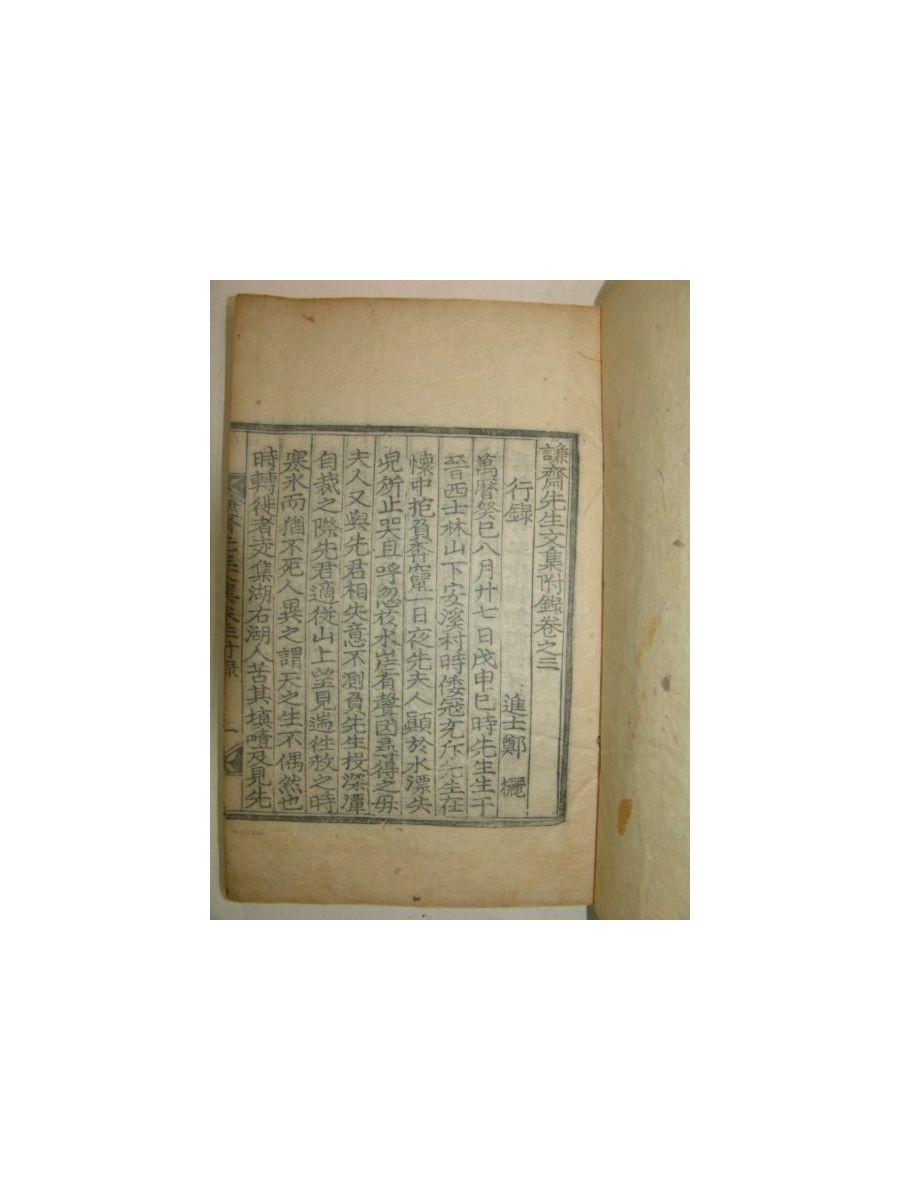 謙齋先生文集附錄卷之三
行錄
進士鄭欐
萬曆癸巳八月廿七日戊申巳時先生生于
晉西士林山下安溪村時倭冦充斥先生在
懷中抱負奔竄一日夜先夫人顚於水漂失
兒所止哭且呼忽於水崖有聲因尋得之毋
夫人又與先君相失意不測負先生投深潭
自裁之際先君適從山上望見遄徃救之時
寒氷而猶不死人異之謂天之生不偶然也
時轉徙者走集湖右湖人苦其塡噎及見先
謙齋先生文集卷三附錄
一